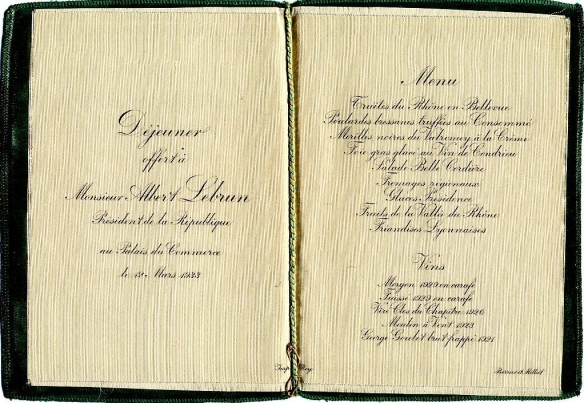 Déjeuner
offert à
Monsieur Albert Lebrun
Président de la République
au Palais du Commerce
le 12 Mars 1933
Menu
Truites du Rhône en Bellevue
Poulardes bressanes truffées au Consommé
Morilles noires du Valromey à la Crème
Foie gras glacé au Vin de Condrieu
Salade Belle Cordière
Fromages régionaux
Glaces Présidence
Fruits de la Vallée du Rhône
Friandises Lyonnaises
Vins
Morgon 1929 en carafe
Fuissé 1929 en carafe
Viré Clos du Chapitre 1926
Moulin à Vent 1923
George Goulet brut frappé 1921